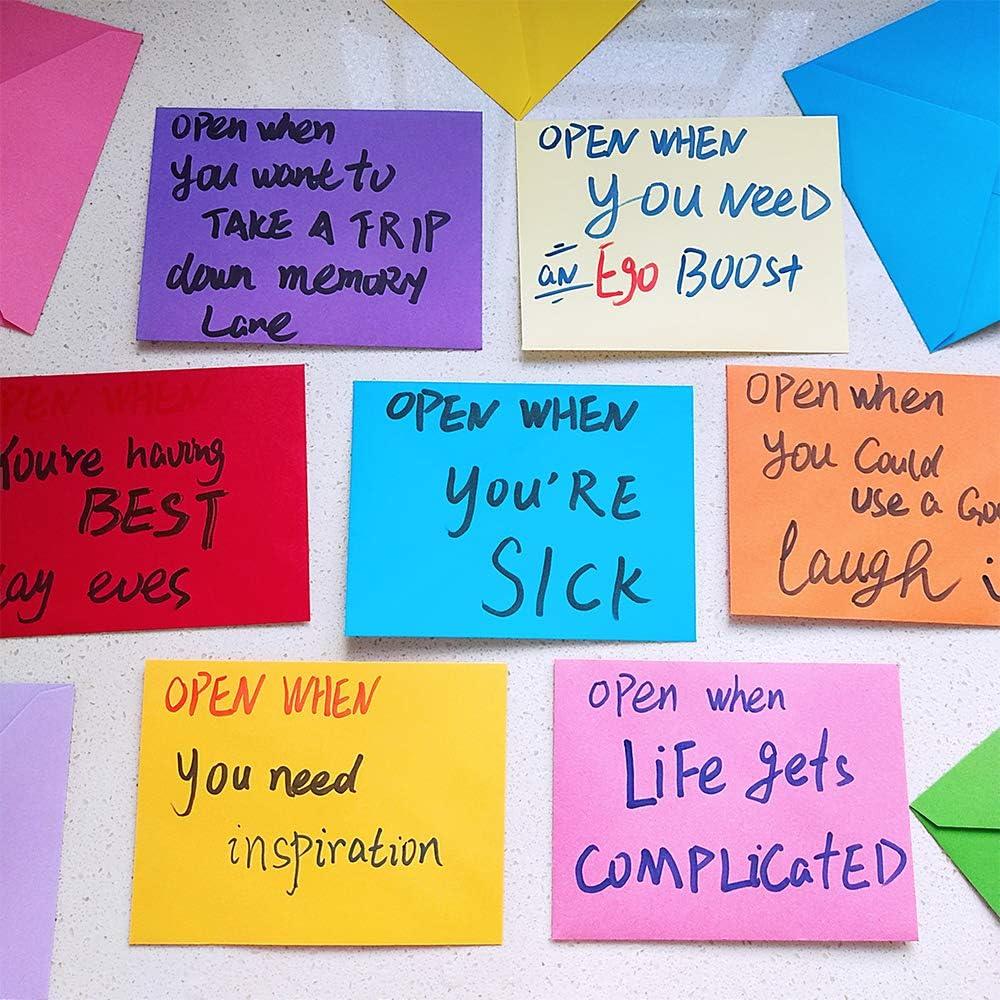 Open when
you want to
TAKE A TRIP
down memory
Lane
OPEN WHEN
YOU NeeD
an Ego BOOSt
OPEN WHEN
You're having
BEST
eves
OPEN WHEN
YOU'RE
SICK
Open when
you Could
use a
laugh
OPEN WHEN
you need
inspiration
Open when
LiFe gets
COMPLiCatED